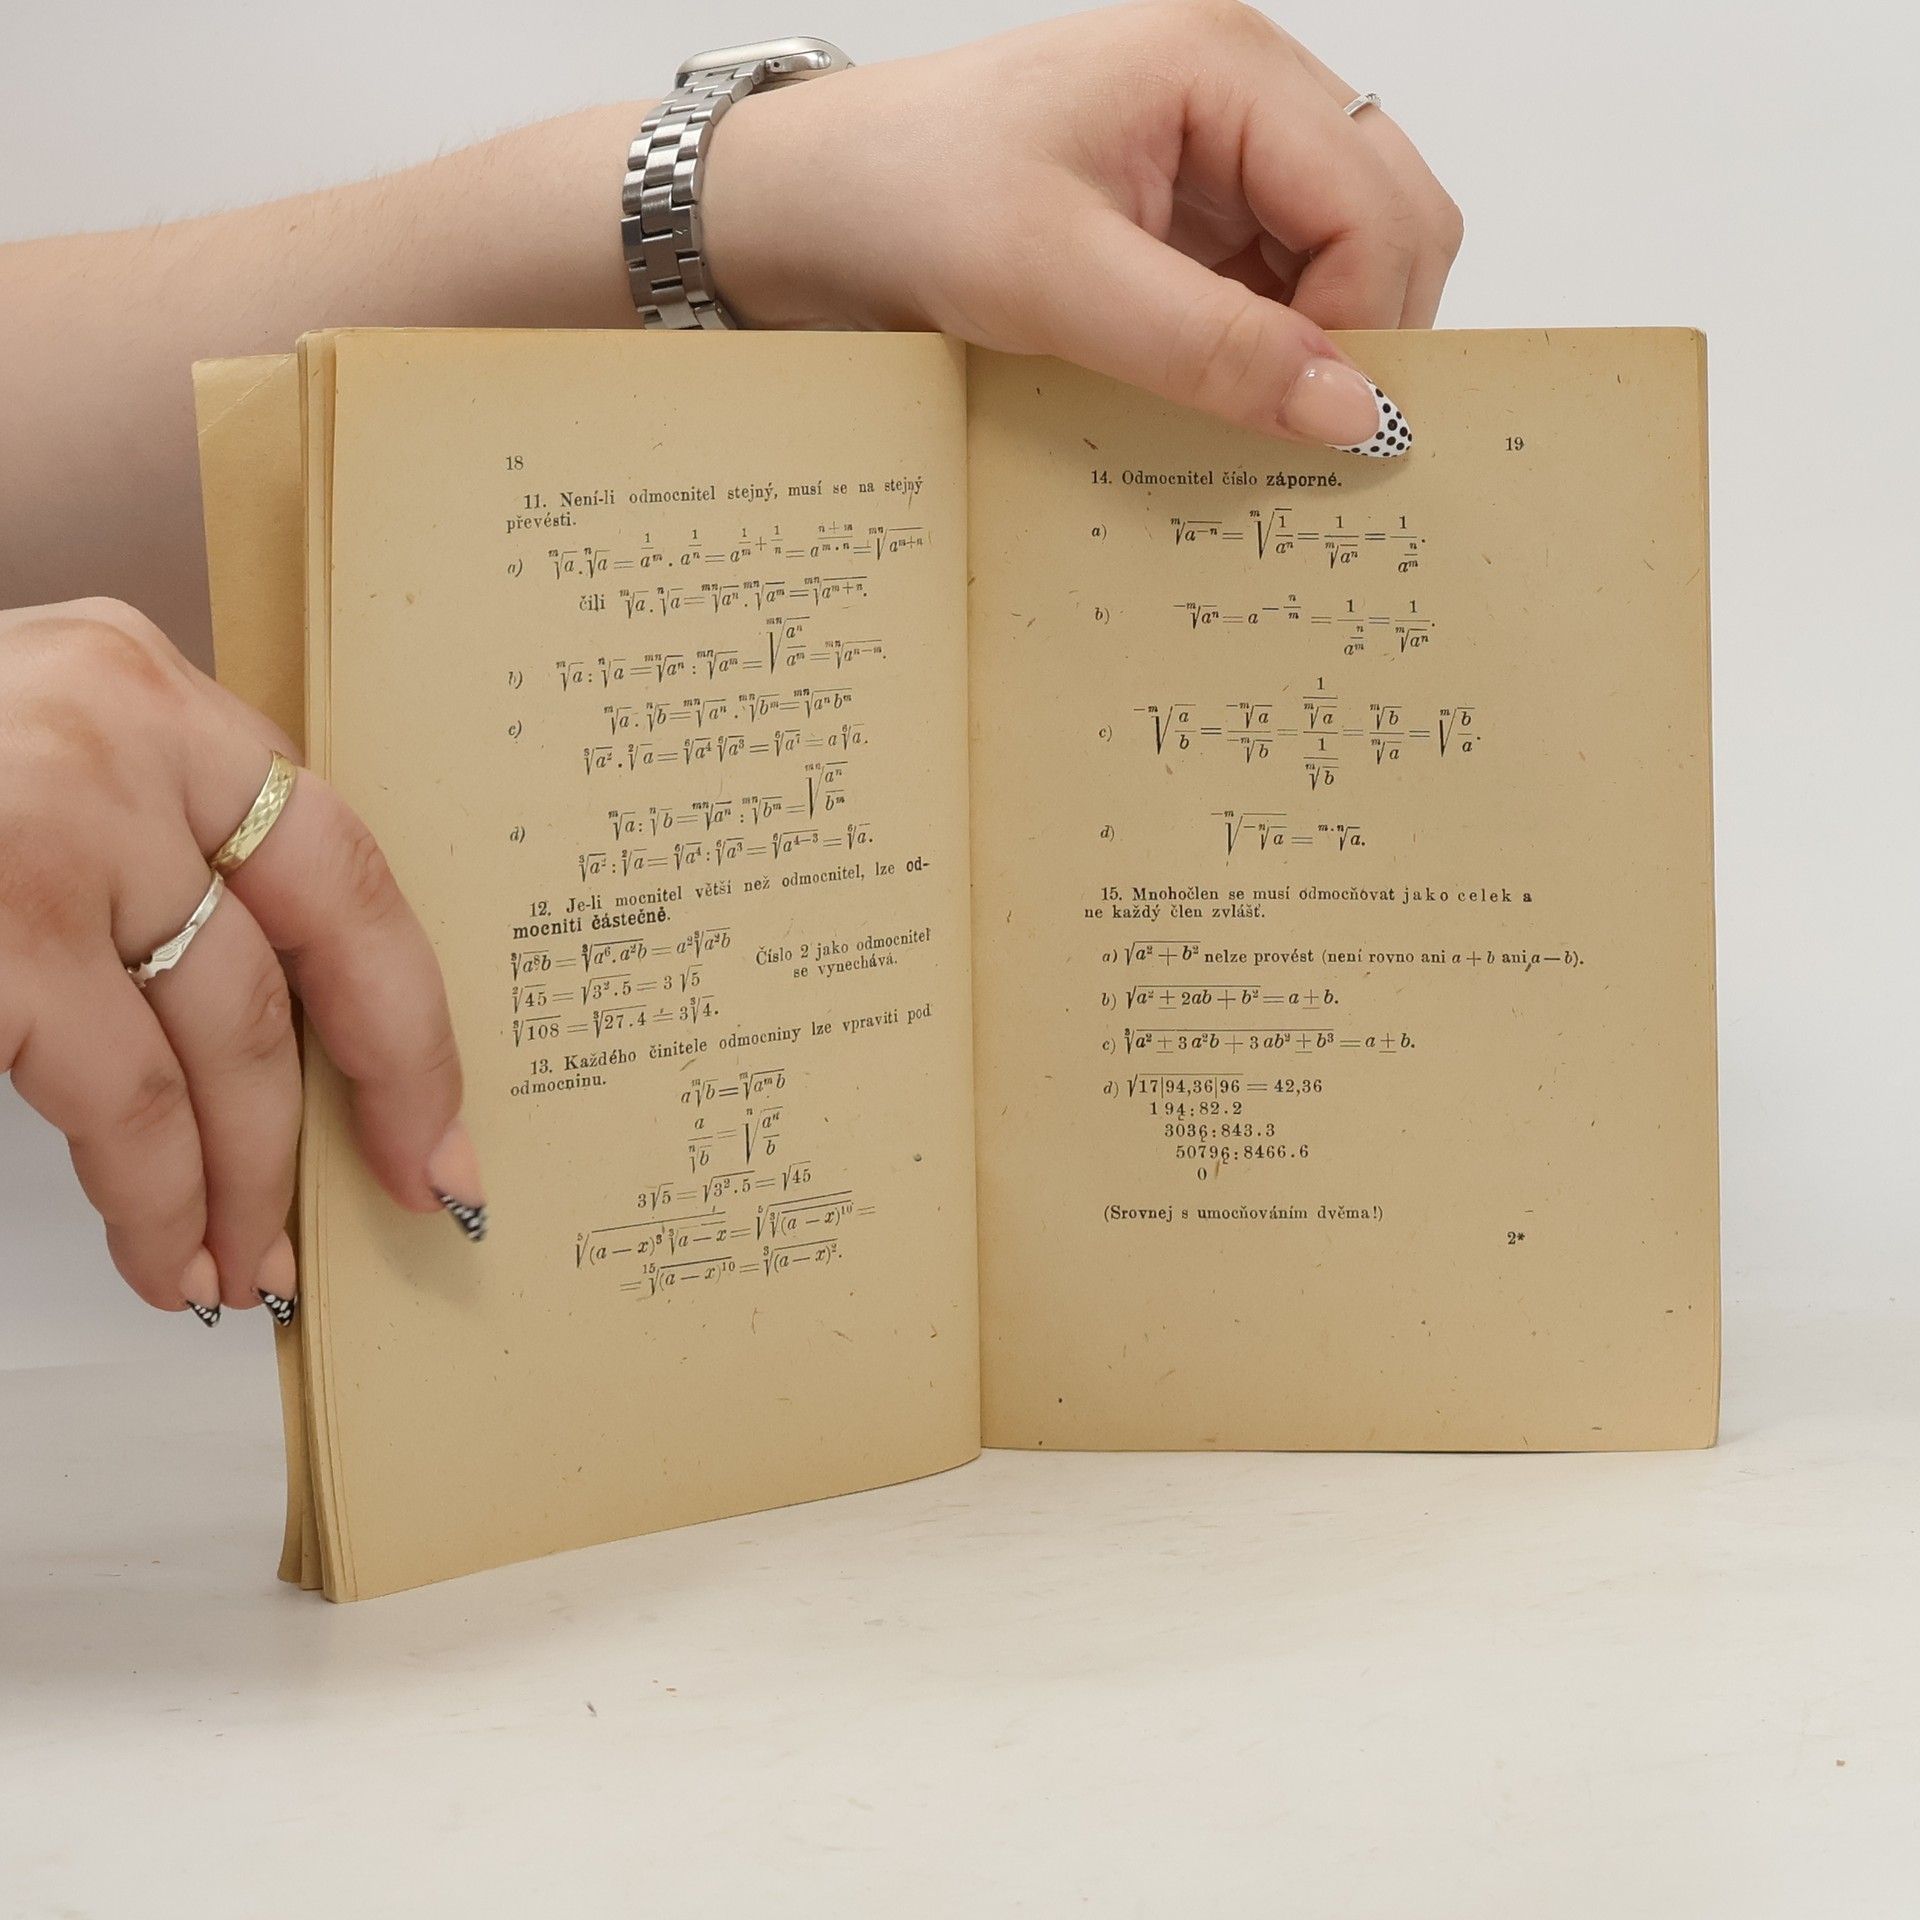 18
11. Není-li odmocnitel stejný, musí se na stejný
převésti.
a) ᵐ√a . ⁿ√a = a^(1/m) . a^(1/n) = a^(1/m + 1/n) = a^((n+m)/(m·n)) = ᵐⁿ√(a^(m+n))
čili ᵐ√a . ⁿ√a = ᵐⁿ√(aⁿ) . ᵐⁿ√(aᵐ) = ᵐⁿ√(a^(m+n)).
b) ᵐ√a : ⁿ√a = ᵐⁿ√(aⁿ) : ᵐⁿ√(aᵐ) = ᵐⁿ√(aⁿ/aᵐ) = ᵐⁿ√(a^(n−m)).
c) ᵐ√a . ⁿ√b = ᵐⁿ√(aⁿ) . ᵐⁿ√(bᵐ) = ᵐⁿ√(aⁿ bᵐ)
³√(a²) . ²√a = ⁶√(a⁴) ⁶√(a³) = ⁶√(a⁷) = a ⁶√a.
d) ᵐ√a : ⁿ√b = ᵐⁿ√(aⁿ) : ᵐⁿ√(bᵐ) = ᵐⁿ√(aⁿ/bᵐ)
³√(a²) : ²√a = ⁶√(a⁴) : ⁶√(a³) = ⁶√(a^(4−3)) = ⁶√a.
12. Je-li mocnitel větší než odmocnitel, lze od-
mocniti částečně.
³√(a⁸b) = ³√(a⁶ . a²b) = a² ³√(a²b)
²√45 = √(3² . 5) = 3 √5
³√108 = ³√(27 . 4) = 3 ³√4.
Číslo 2 jako odmocnitel
se vynechává.
13. Každého činitele odmocniny lze vpraviti pod
odmocninu.
a ᵐ√b = ᵐ√(aᵐ b)
a/ⁿ√b = ⁿ√(aⁿ/b)
3√5 = √(3² . 5) = √45
⁵√((a − x)³ ³√(a − x)) = ⁵√(³√((a − x)¹⁰)) =
= ¹⁵√((a − x)¹⁰) = ³√((a − x)²).
19
14. Odmocnitel číslo záporné.
a) ᵐ√(a⁻ⁿ) = ᵐ√(1/aⁿ) = 1/ᵐ√(aⁿ) = 1/a^(n/m).
b) ⁻ᵐ√(aⁿ) = a^(−n/m) = 1/a^(n/m) = 1/ᵐ√(aⁿ).
c) ⁻ᵐ√(a/b) = ⁻ᵐ√a/⁻ᵐ√b = (1/ᵐ√a)/(1/ᵐ√b) = ᵐ√b/ᵐ√a = ᵐ√(b/a).
d) ⁻ᵐ√(⁻ⁿ√a) = ᵐ·ⁿ√a.
15. Mnohočlen se musí odmocňovat jako celek a
ne každý člen zvlášť.
a) √(a² + b²) nelze provést (není rovno ani a + b ani a — b).
b) √(a² ± 2ab + b²) = a ± b.
c) ³√(a² ± 3 a²b + 3 ab² ± b³) = a ± b.
d) √17|94,36|96 = 42,36
1 94 : 82 . 2
3036 : 843 . 3
50796 : 8466 . 6
0
(Srovnej s umocňováním dvěma!)
2*